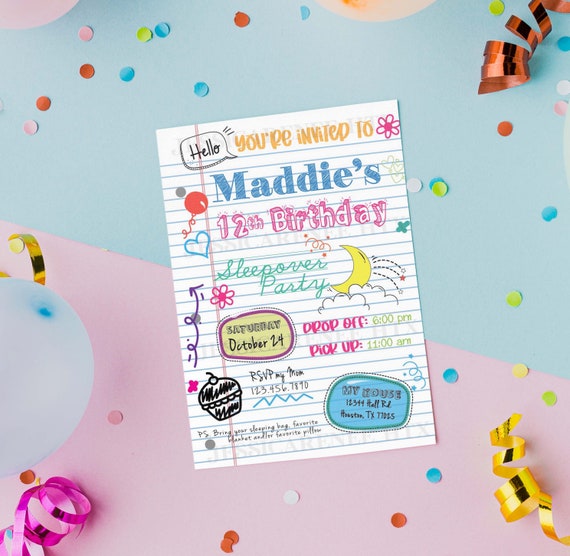 Hello
YOU'RE INVITED TO
Maddie's
12th Birthday
Sleepover
Party
SATURDAY
October 24
DROP OFF: 6:00 pm
PICK UP: 11:00 am
RSVP my Mom
123.456.7890
MY HOUSE
12344 Hall Rd.
Houston, TX 77025
PS. Bring your sleeping bag, favorite
blanket and/or favorite pillow
JESSICARENEE HTX